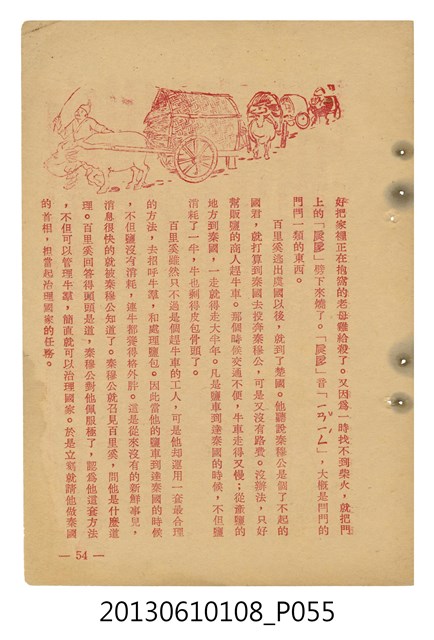 好把家裡正在抱窩的老母雞給殺了。又因爲一時找不到柴火,就把門
上的「扊扅」劈下來燒了。「扊扅」音「ㄧㄢˇㄧˊ」,大槪是門閂的
門閂一類的東西。
百里奚逃出虞國以後,就到了楚國。他聽說秦穆公是個了不起的
國君,就打算到秦國去投奔秦穆公,可是又沒有路費。沒辦法,只好
幫販鹽的商人趕牛車。那個時候交通不便,牛車走得又慢;從產鹽的
地方到秦國,一走就得走大半年。凡是鹽車到達秦國的時候,不但鹽
消耗了一半,牛也剩得皮包骨頭了。
百里奚雖然只不過是個趕牛車的工人,可是他却運用一套最合理
的方法,去招呼牛羣,和處理鹽包。因此當他的鹽車到達秦國的時候
,不但鹽沒有消耗,連牛都養得格外胖。這是從來沒有的新鮮事兒,
消息很快的就被秦穆公知道了。秦穆公就召見百里奚,問他是什麼道
理。百里奚回答得頭頭是道,秦穆公對他佩服極了,認爲他這套方法
,不但可以管理牛羣,簡直就可以治理國家。於是立刻就請他做秦國
的首相,担當起治理國家的任務。
— 54 —
20130610108_P055